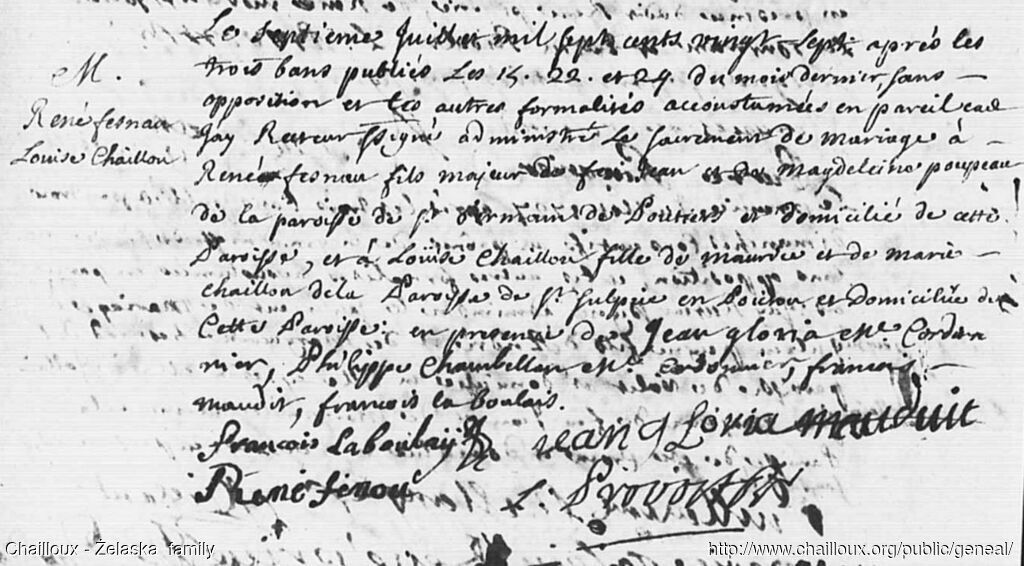 M.
René fesnau
Louise Chaillou
Le Septieme Juillet mil Sept cents vingt Sept après les
trois bans publiés Les 15. 22. et 29. du mois dernier, sans
opposition et les autres formalités accoustumées en pareil cas
Jay Recteur ssigné administré Le Sacrement de mariage à
René fesnau fils majeur de feu Jean et de Magdeleine poupeau
de la paroisse de St Germain de Poitiers et domicilié de cette
Paroisse, et à Louise Chaillou fille de maurice et de marie
chaillou de la Paroisse de St Sulpice en Poitou et domiciliée de
Cette Paroisse: en presence de Jean gloria Me. Cordon
nier, Philippe Chambellan Me. cordonnier, francois
mauduit, francois la boulais.
francois Laboulay jean gLoria mauduit
René fenou
L. Provost
Chailloux - Żelaska family
http://www.chailloux.org/public/geneal/